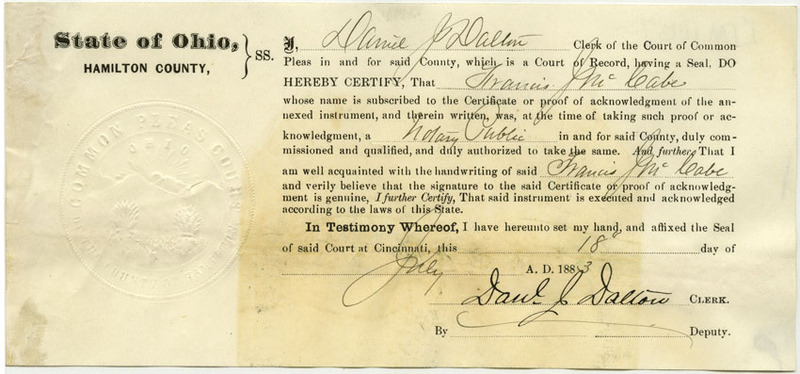 State of Ohio,
HAMILTON COUNTY,
} ss.
I, Daniel J Dalton Clerk of the Court of Common
Pleas in and for said County, which is a Court of Record, having a Seal, DO
HEREBY CERTIFY, That Francis J McCabe
whose name is subscribed to the Certificate or proof of acknowledgment of the an-
nexed instrument, and therein written, was, at the time of taking such proof or ac-
knowledgment, a Notary Public in and for said County, duly com-
missioned and qualified, and duly authorized to take the same. And further That I
am well acquainted with the handwriting of said Francis J McCabe
and verily believe that the signature to the said Certificate or proof of acknowledg-
ment is genuine, I further Certify, That said instrument is executed and acknowledged
according to the laws of this State.
In Testimony Whereof, I have hereunto set my hand, and affixed the Seal
of said Court at Cincinnati, this 18" day of
July A. D. 1883
Danl. J Dalton CLERK.
By Deputy.
COMMON PLEAS COURT